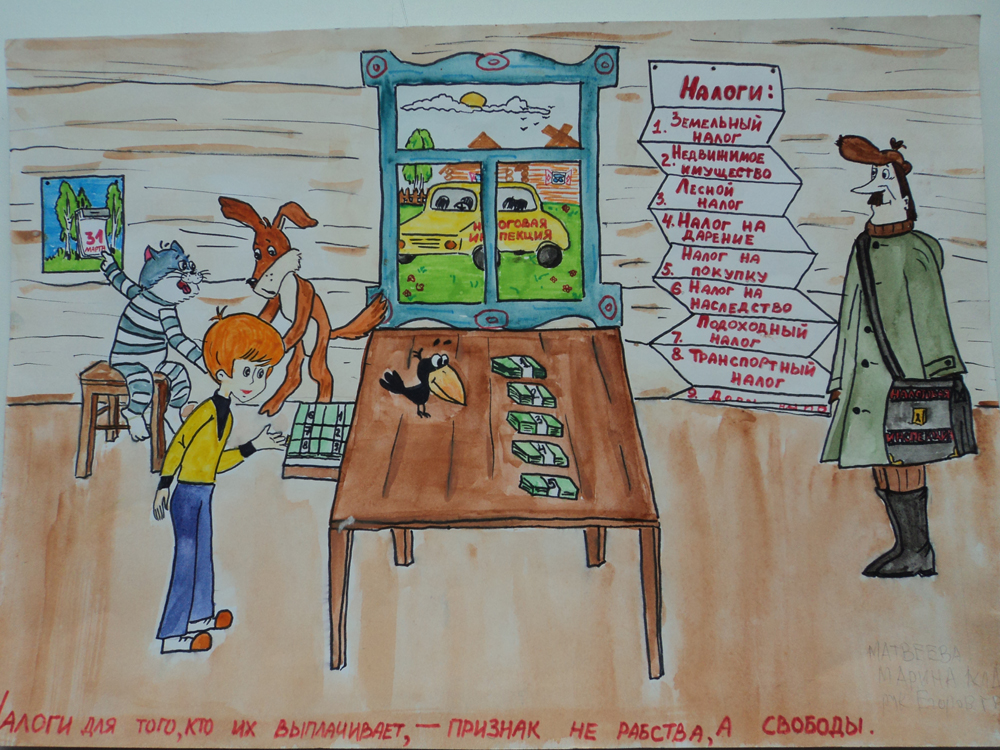 Налоги:
1. Земельный
налог
2. Недвижимое
имущество
3. Лесной
налог
4. Налог на
дарение
5. Налог на
покупку
6 Налог на
наследство
7. Подоходный
налог
8. Транспортный
налог
9.
31
марта
Налоговая
инспекция
Матвеева
Марина
Налоги для того, кто их выплачивает, — признак не рабства, а свободы.